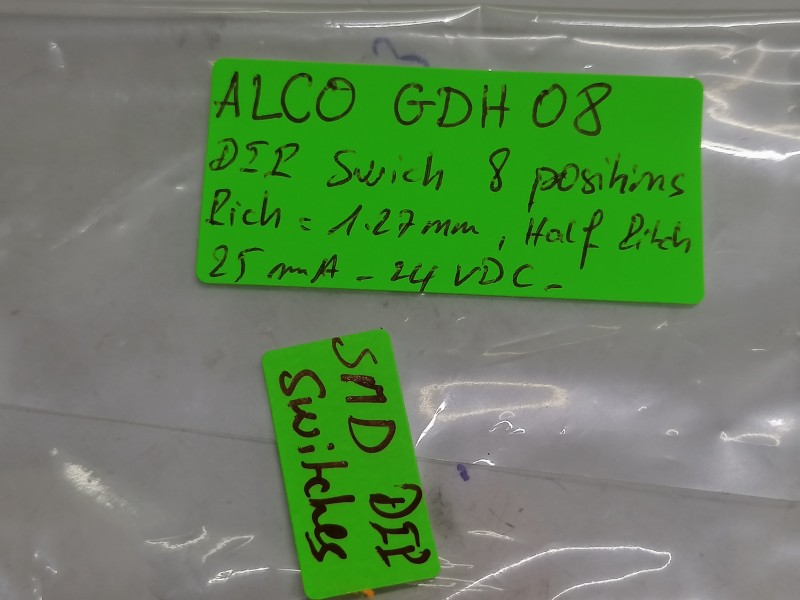 ALCO GDH 08
DIP Swich 8 positions
Pich = 1.27mm, Half Pitch
25 mA - 24 VDC -
SMD DIP
Switches